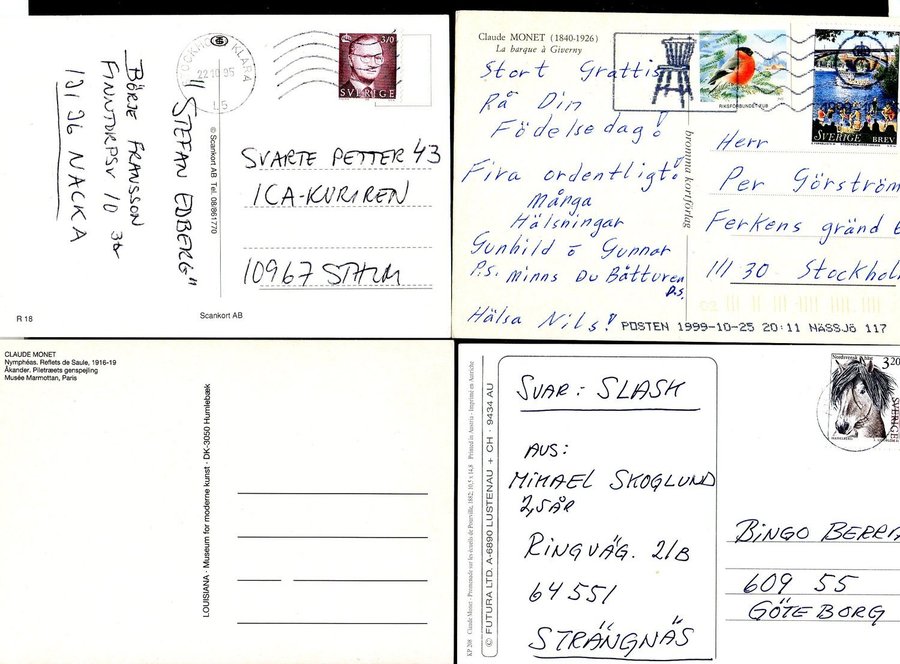 BÖRJE FRANSSON
FINNTORPSV 10 3tr
131 36 NACKA
"STEFAN EDBERG"
22.10.95
KLARA
L5
3/0
SVERIGE
© Scankort AB Tel. 08-961770
SVARTE PETTER 43
ICA-KURIREN
10967 STHLM
R 18
Scankort AB
Claude MONET (1840-1926)
La barque à Giverny
Stort Grattis
På Din
Födelsedag!
Fira ordentligt!
Många
Hälsningar
Gunhild o Gunnar
P.S. Minns Du Båtturen
D.S.
Hälsa Nils!
bromma kortförlag
RIKSFÖRBUNDET FUB
SVERIGE BREV
Herr
Per Görström
Ferkens gränd
111 30 Stockholm
POSTEN 1999-10-25 20:11 NÄSSJÖ 117
CLAUDE MONET
Nymphéas. Reflets de Saule, 1916-19
Åkander. Piletræets genspejling
Musée Marmottan, Paris
LOUISIANA · Museum for moderne kunst · DK-3050 Humlebæk
KP 208 Claude Monet - Promenade sur les écueils de Pourville, 1882; 10,5 x 14,8 Printed in Austria - Imprimé en Autriche
© FUTURA LTD. A-6890 LUSTENAU + CH - 9434 AU
SVAR: SLASK
AUS:
MIKAEL SKOGLUND
2,5 ÅR
RINGVÄG. 21B
64551
STRÄNGNÄS
3.20
SVERIGE
BINGO BERRA
609 55
GÖTEBORG